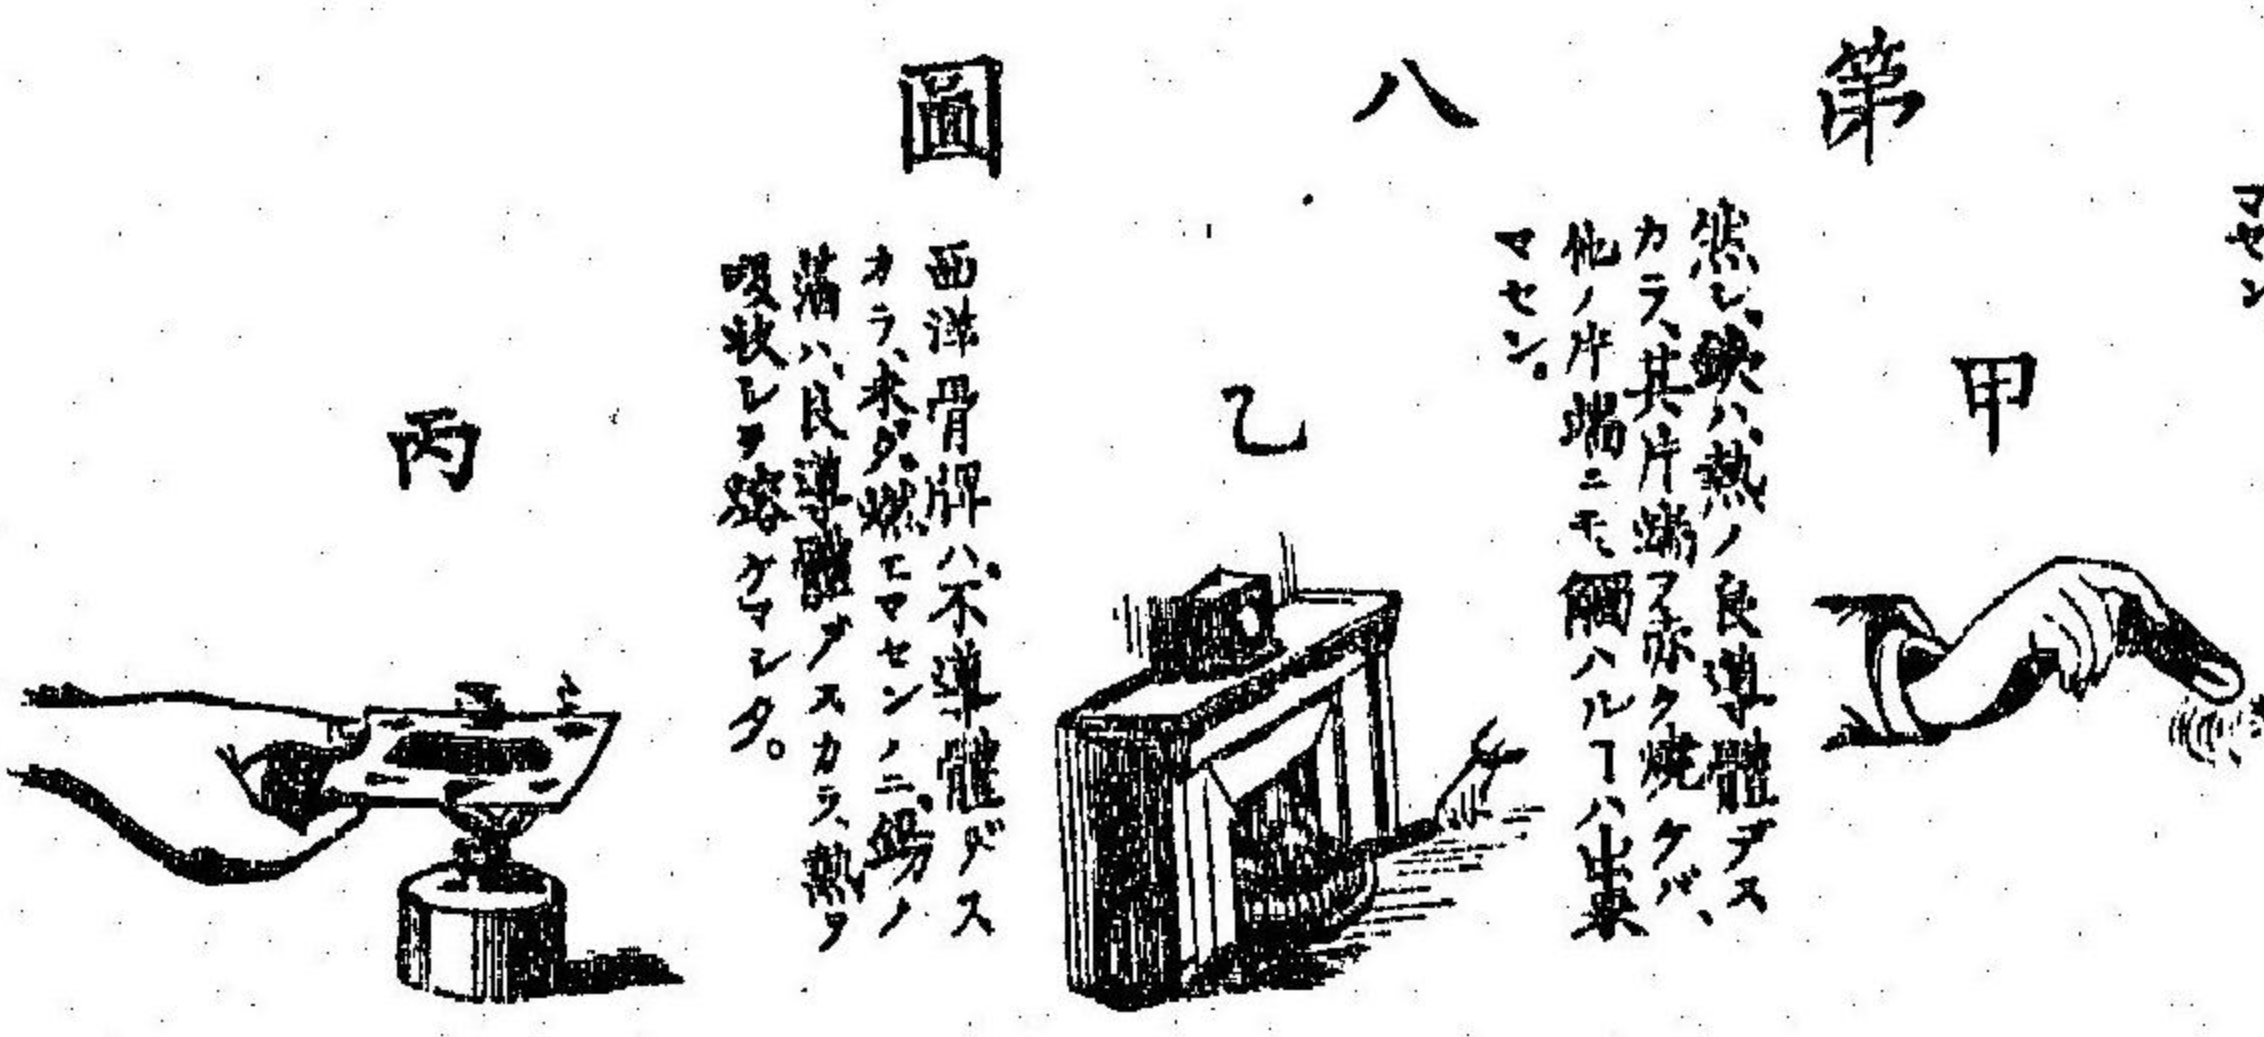 マセン
第八圖
甲
然シ、鐵ハ、熱ノ良導體デス
カラ、其片端ヲ赤ク燒ケバ、
他ノ片端ニモ、觸ハルヿハ出來
マセン。
乙
西洋骨牌ハ、不導體デス
カラ、未ダ燃エマセンノニ、錫ノ
箔ハ、良導體デスカラ、熱ヲ
吸收シテ鎔ケマシタ。
丙